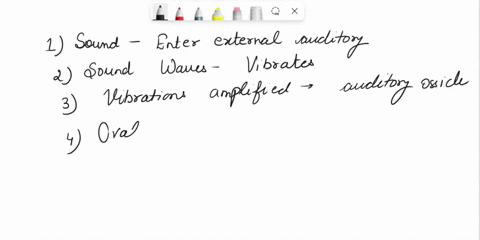 1) Sound - Enter external auditory
2) Sound Waves - Vibrates
3) Vibrations amplified → auditory ossicle
4) Oval